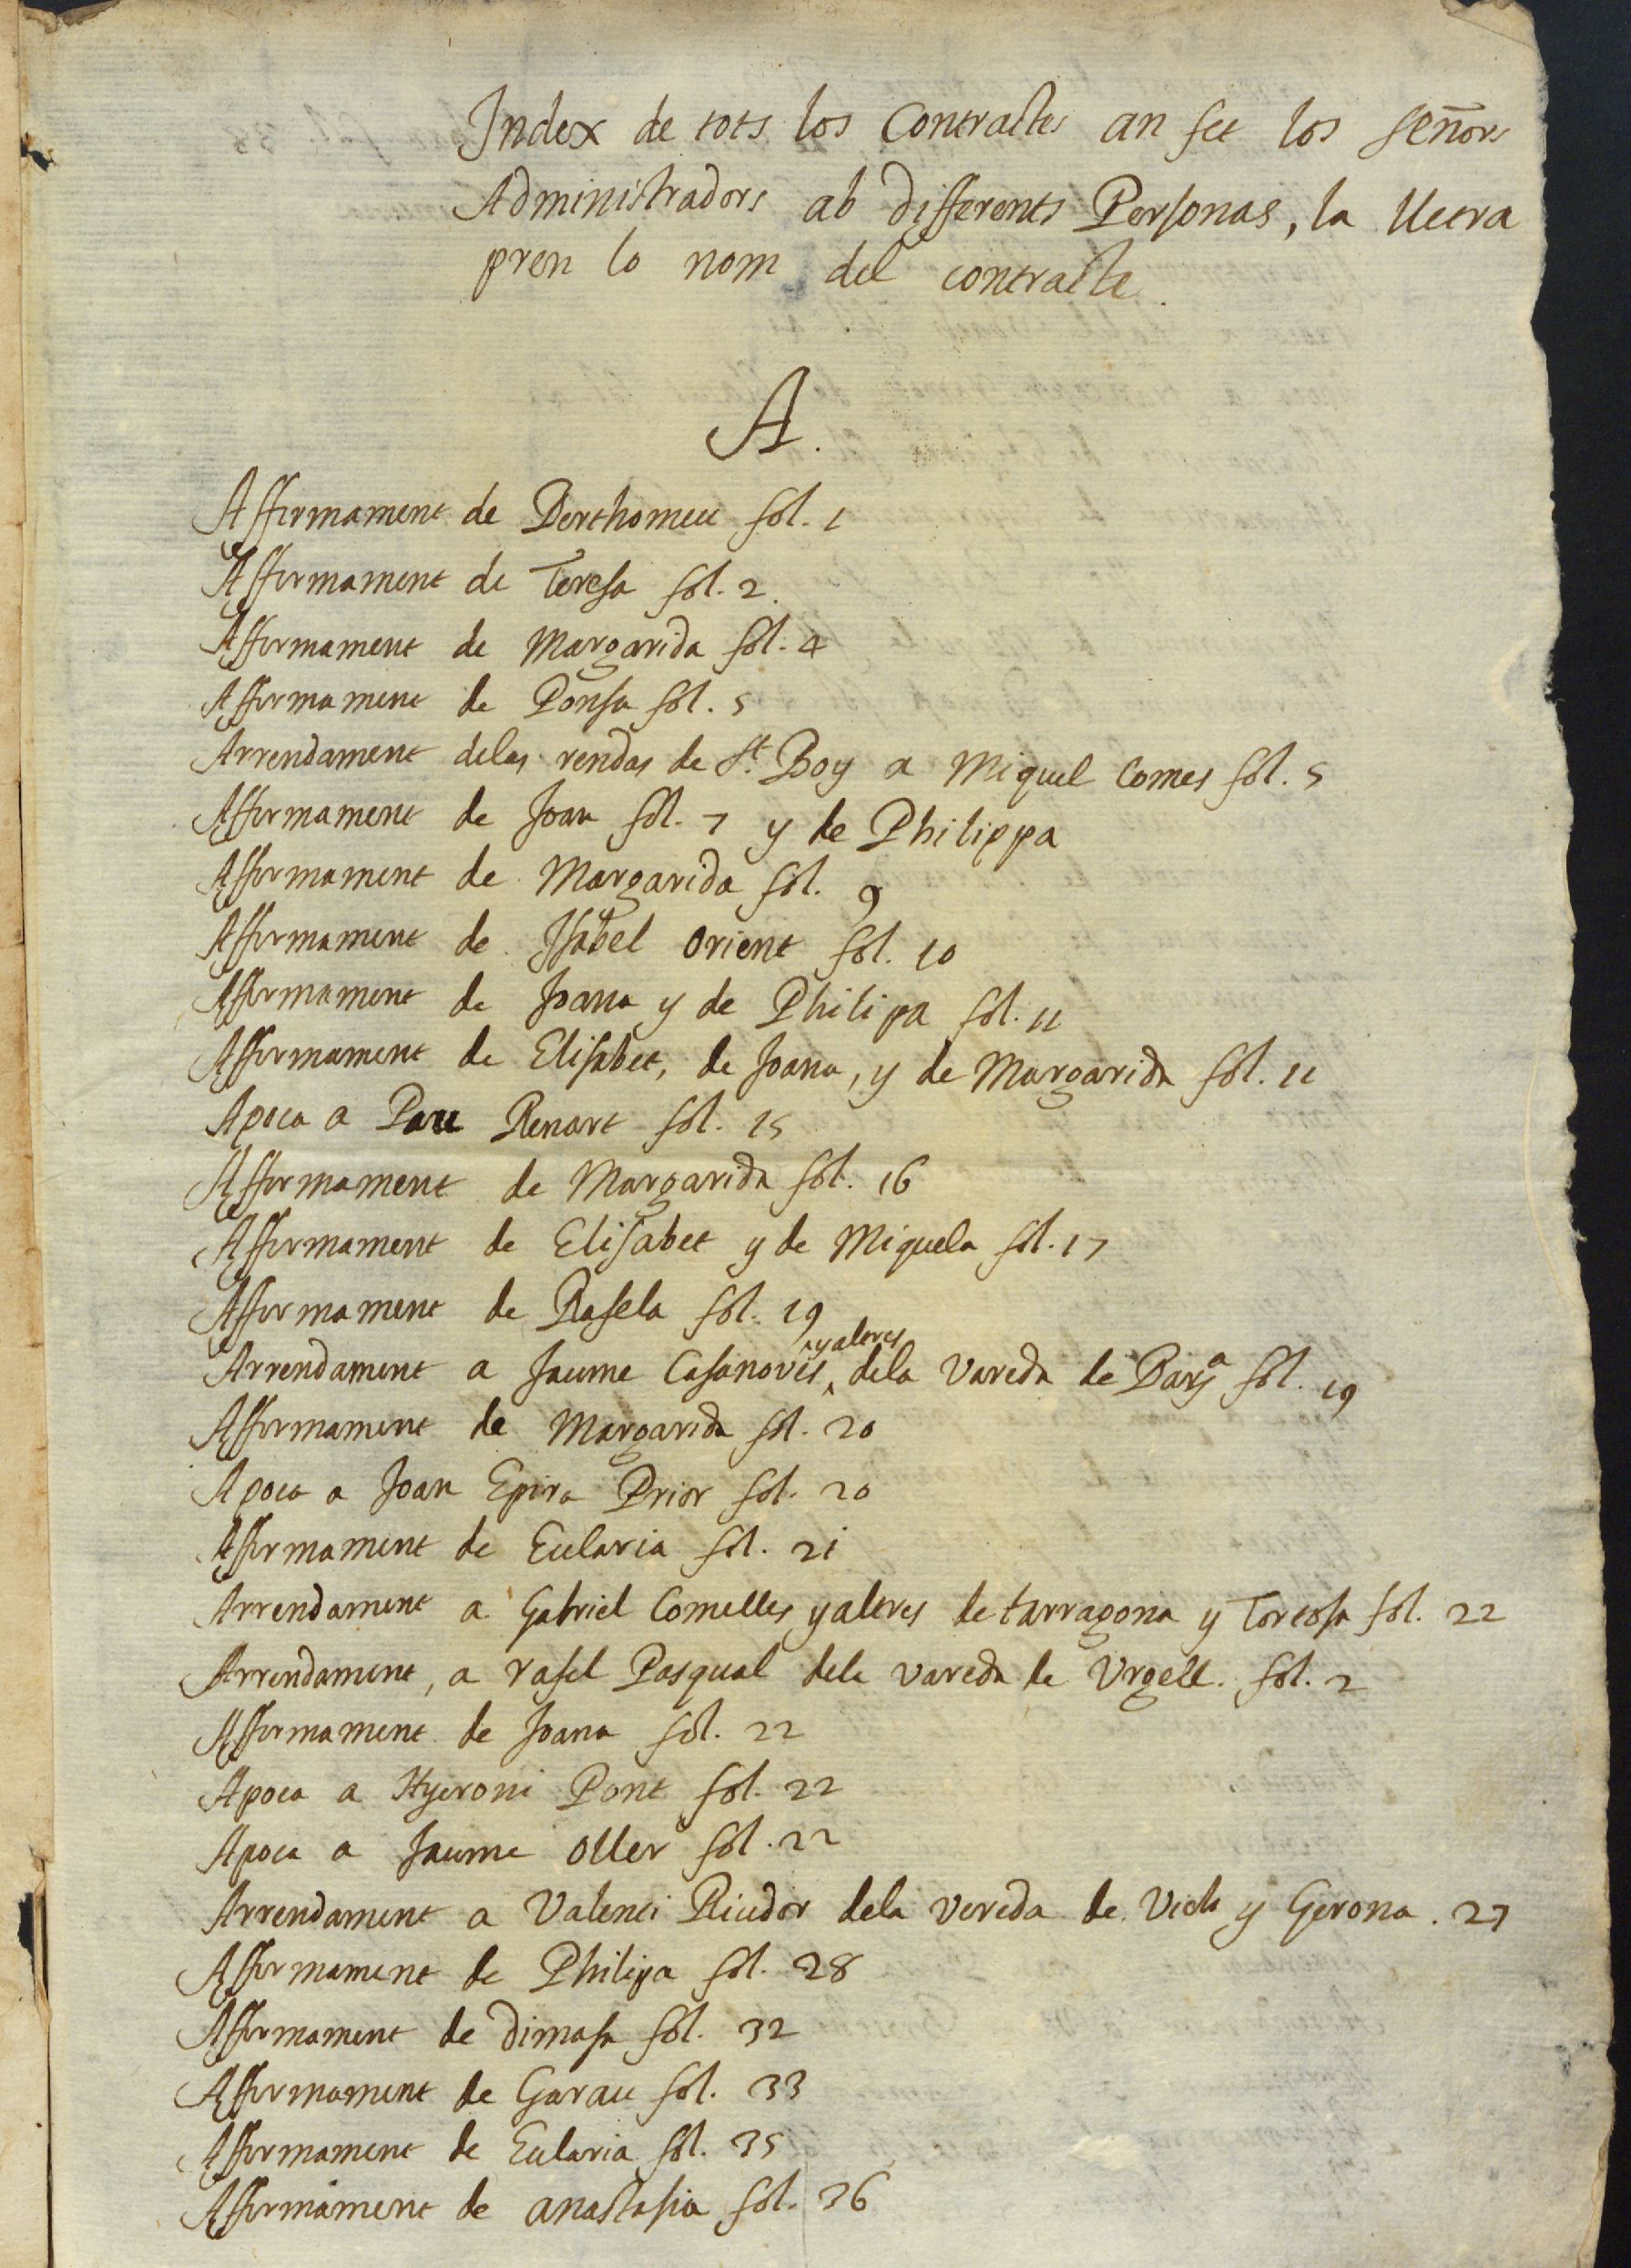 Index de tots los Contractes an fet los señors
Administradors ab differents Personas, la lletra
pren lo nom del contracte.
A.
Affirmament de Berthomeu fol. 1
Affirmament de Teresa fol. 2.
Affirmament de Margarida fol. 4
Affirmament de Ponsa fol. 5
Arrendament delas rendas de St. Boy a Miquel Comes fol. 5
Affirmament de Joan fol. 7 y de Philippa
Affirmament de Margarida fol. 9
Affirmament de Isabel Orient fol. 10
Affirmament de Joana y de Philipa fol. 11
Affirmament de Elisabet, de Joana, y de Margarida fol. 11
Apoca a Pau Renart fol. 15
Affirmament de Margarida fol. 16
Affirmament de Elisabet y de Miquela fol. 17
Affirmament de Rafela fol. 19
Arrendament a Jaume Casanoves y altres dela Vareda de Barna fol. 19
Affirmament de Margarida fol. 20
Apoca a Joan Epira Prior fol. 20
Affirmament de Eularia fol. 21
Arrendament a Gabriel Comelles y altres de tarragona y Tortosa fol. 22
Arrendament, a rafel Pasqual dela vareda de Urgell. fol. 2
Affirmament de Joana fol. 22
Apoca a Hyeroni Pont fol. 22
Apoca a Jaume Oller fol. 22
Arrendament a Valenti Riudor dela Vereda de Vich y Gerona. 27
Affirmament de Philipa fol. 28
Affirmament de dimasa fol. 32
Affirmament de Garau fol. 33
Affirmament de Eularia fol. 35
Affirmament de anastasia fol. 36